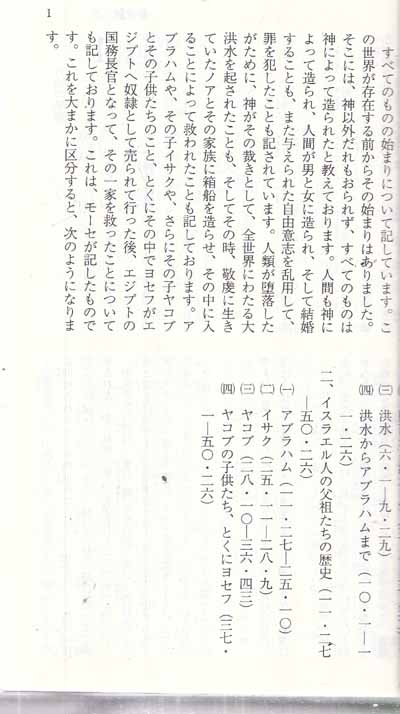 すべてのものの始まりについて記しています。こ
の世界が存在する前からその始まりはありました。
そこには、神以外だれもおられず、すべてのものは
神によって造られたと教えております。人間も神に
よって造られ、人間が男と女に造られ、そして結婚
することも、また与えられた自由意志を乱用して、
罪を犯したことも記されています。人類が堕落した
がために、神がその裁きとして、全世界にわたる大
洪水を起されたことも、そしてその時、敬虔に生き
ていたノアとその家族に箱船を造らせ、その中に入
ることによって救われたことも記しております。ア
ブラハムや、その子イサクや、さらにその子ヤコブ
とその子供たちのこと、とくにその中でヨセフがエ
ジプトへ奴隷として売られて行った後、エジプトの
国務長官となって、その一家を救ったことについて
も記しております。これは、モーセが記したもので
す。これを大まかに区分すると、次のようになりま
す。
㈢ 洪水(六・一―九・二九)
㈣ 洪水からアブラハムまで(一〇・一―一
一・二六)
二、イスラエル人の父祖たちの歴史(一一・二七
―五〇・二六)
㈠ アブラハム(一一・二七―二五・一〇)
㈡ イサク(二五・一一―二八・九)
㈢ ヤコブ(二八・一〇―三六・四三)
㈣ ヤコブの子供たち、とくにヨセフ(三七・
一―五〇・二六)
1